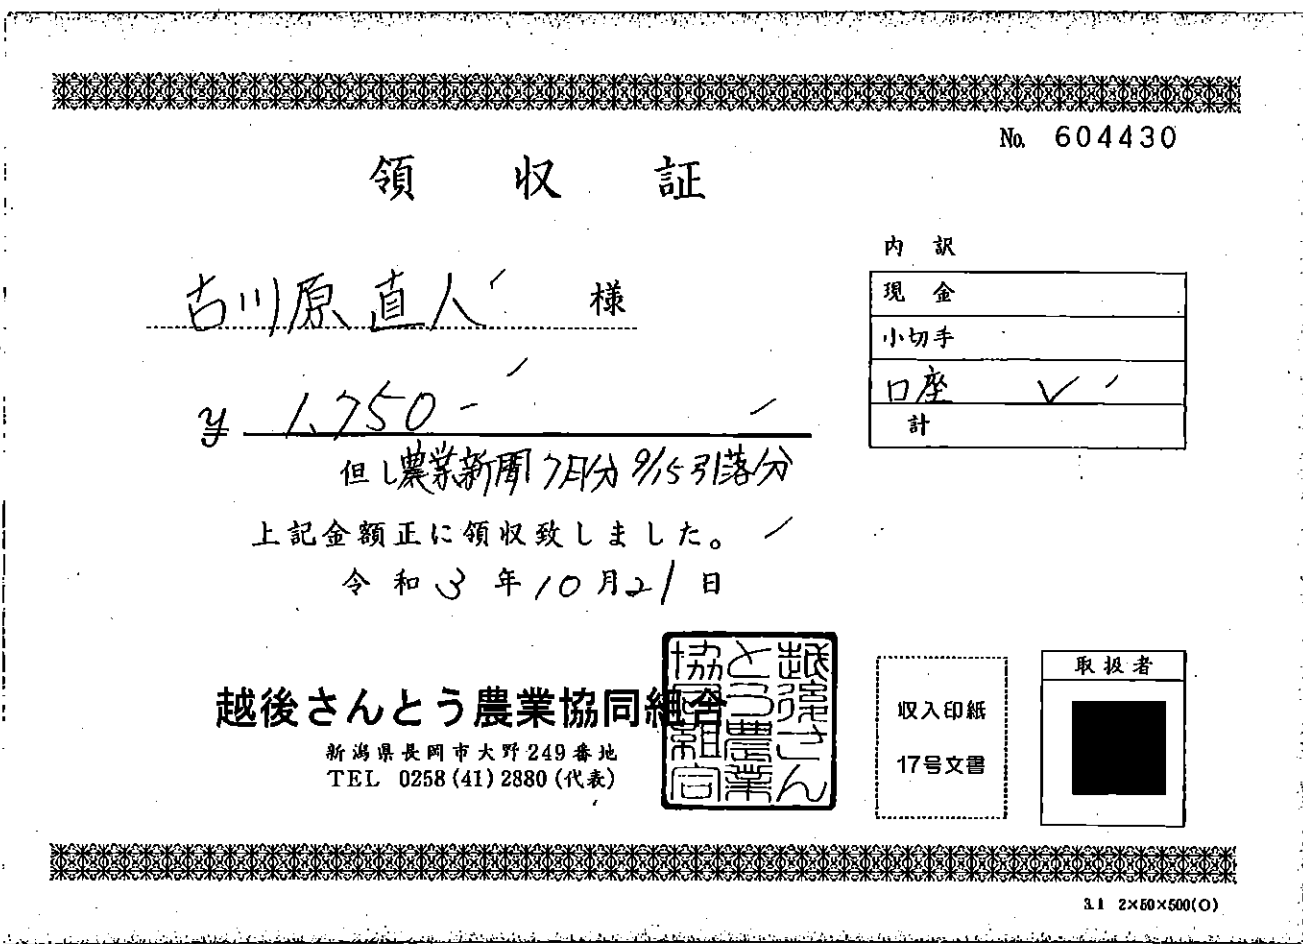 No. 604430
領収証
古川原直人 様
¥ 1,750-
但し農業新聞7月分 9/15引落分
上記金額正に領収致しました。
令和3年10月21日
内訳
現金
小切手
口座 ✓
計
越後さんとう農業協同組合
新潟県長岡市大野249番地
TEL 0258(41)2880(代表)
越後さん
とう農業
協同組合
収入印紙
17号文書
取扱者
3.1 2×50×500(O)